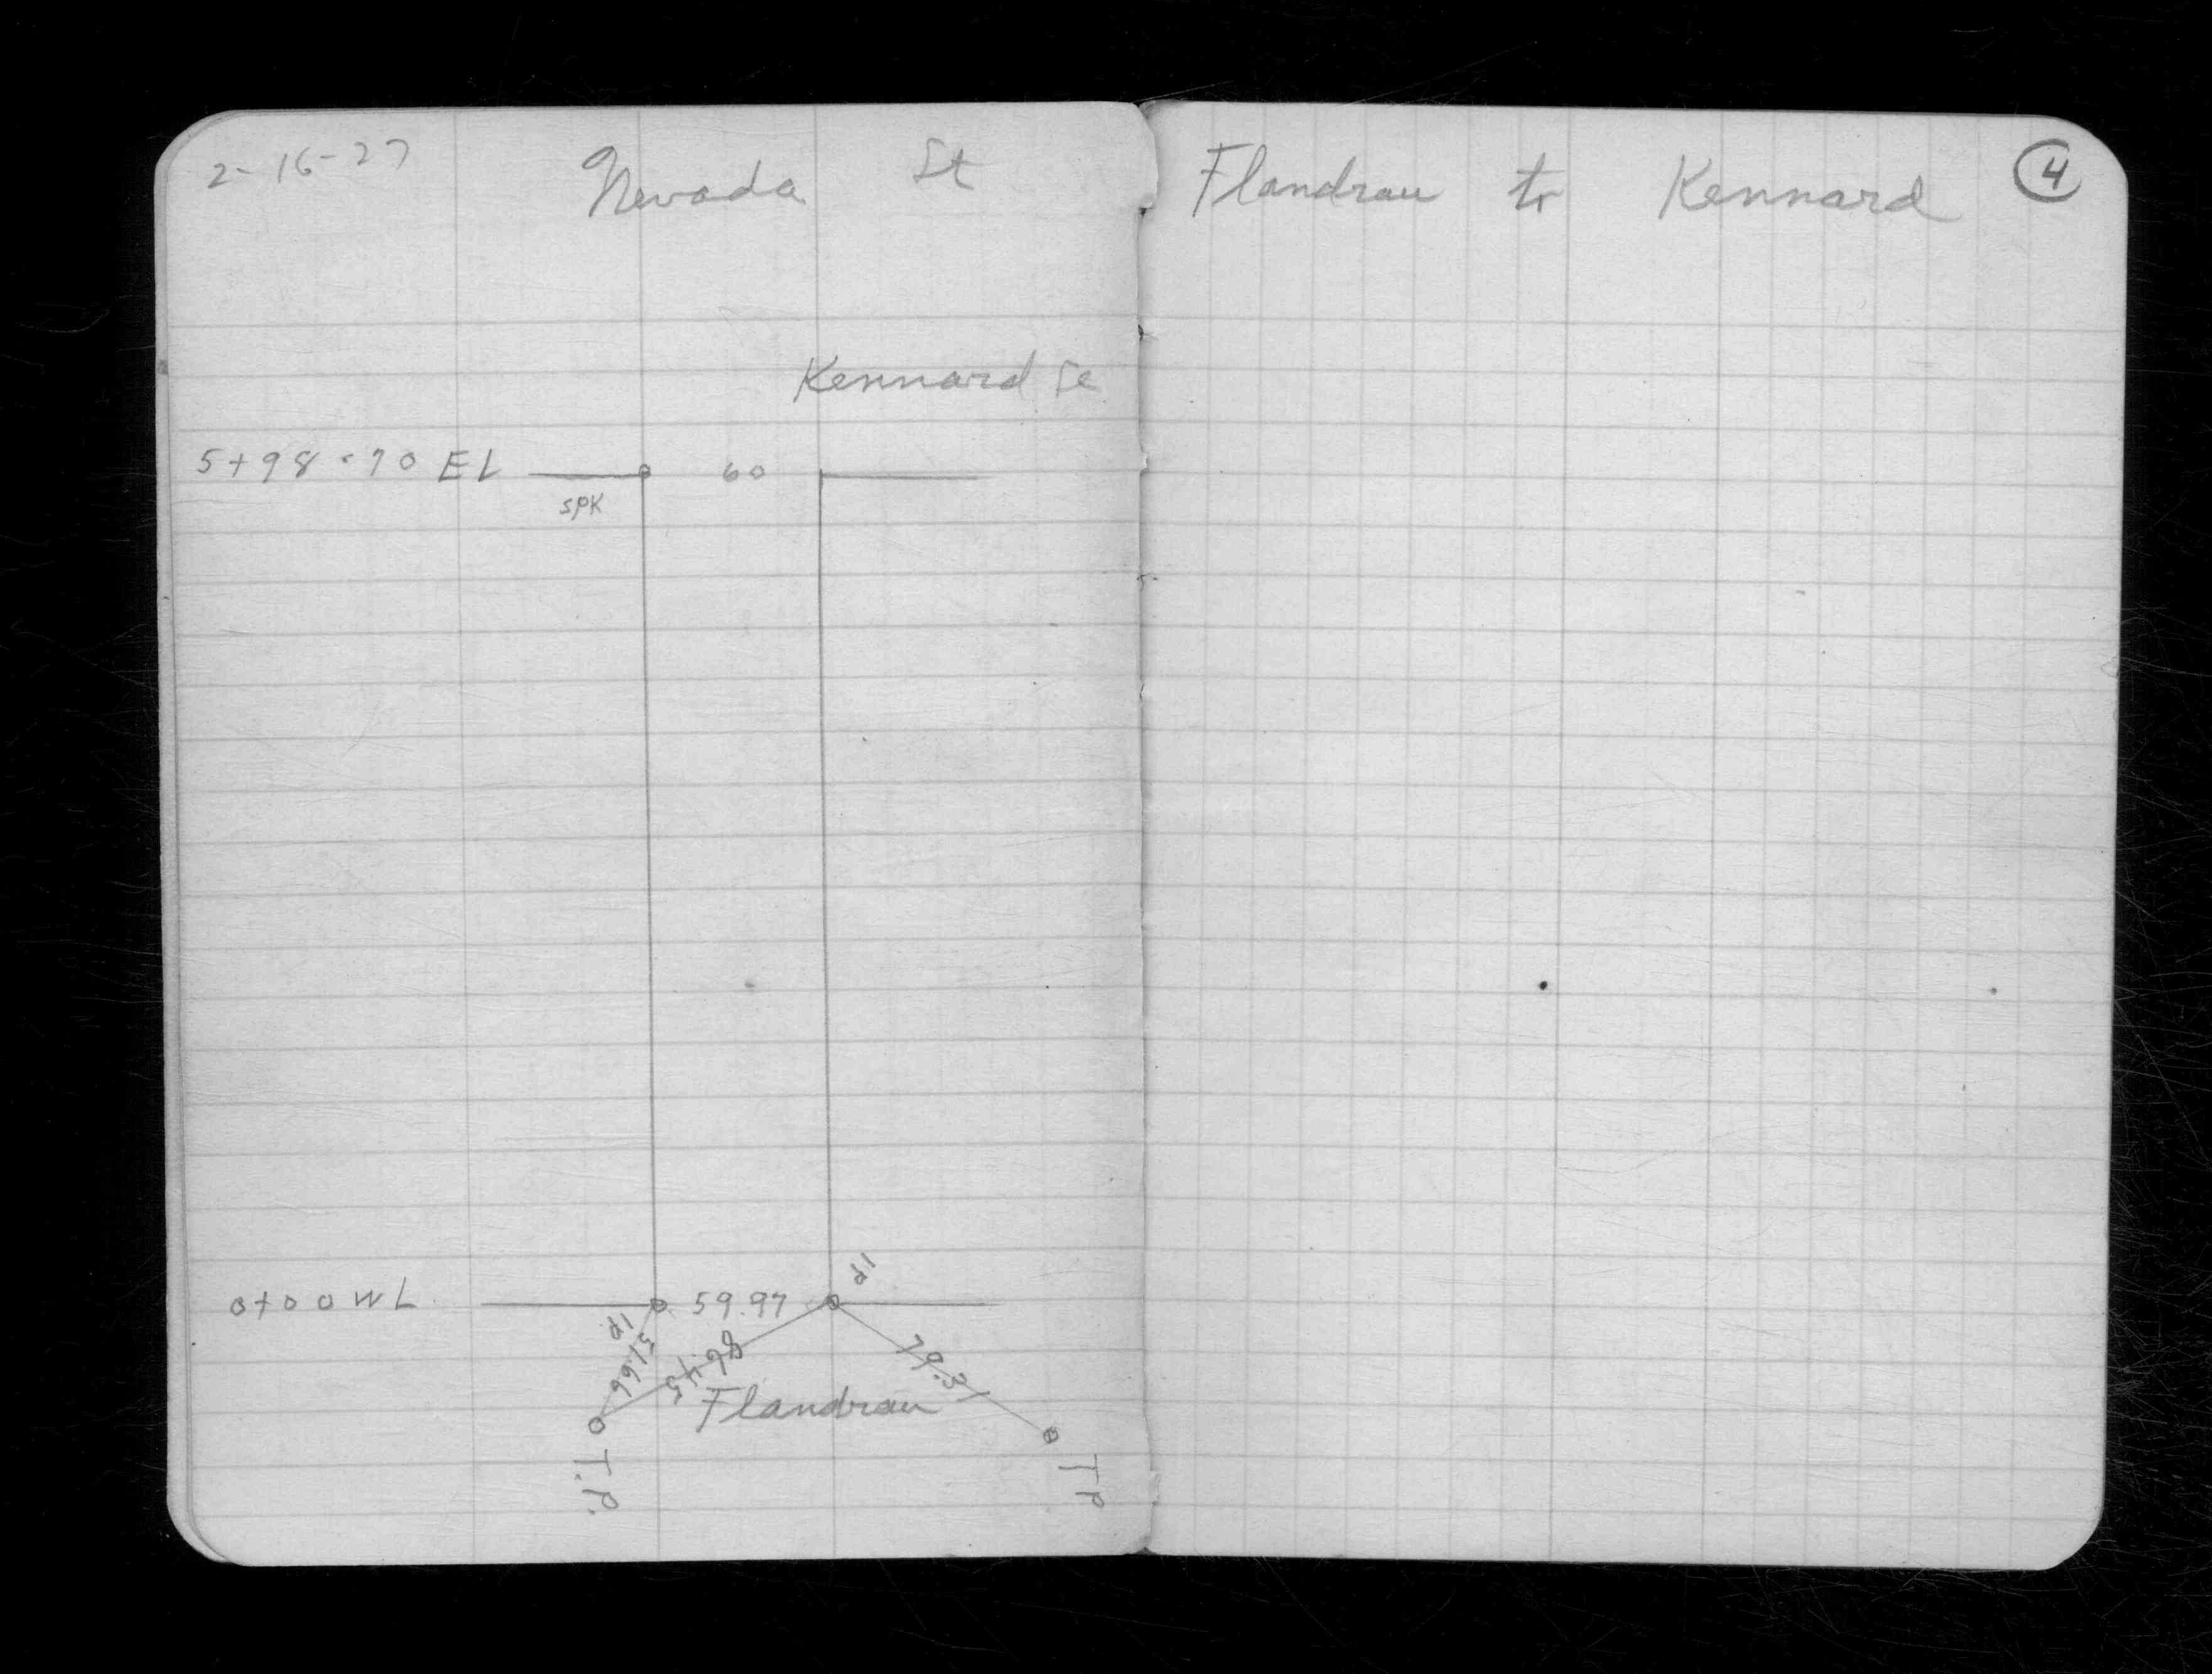 2-16-27 Nevada St Flandrau to Kennard 4
Kennard St
5+98.70 EL 60
SPK
IP
0+00 WL 59.97
IP 51.66 86.45 79.31
Flandrau
T.P. TP